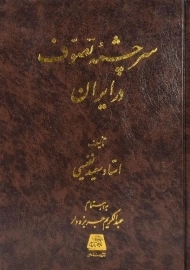 سرچشمهٔ تصوف
در ایران
تألیف
استاد سعید نفیسی
به اهتمام
عبدالکریم جربزه‌دار